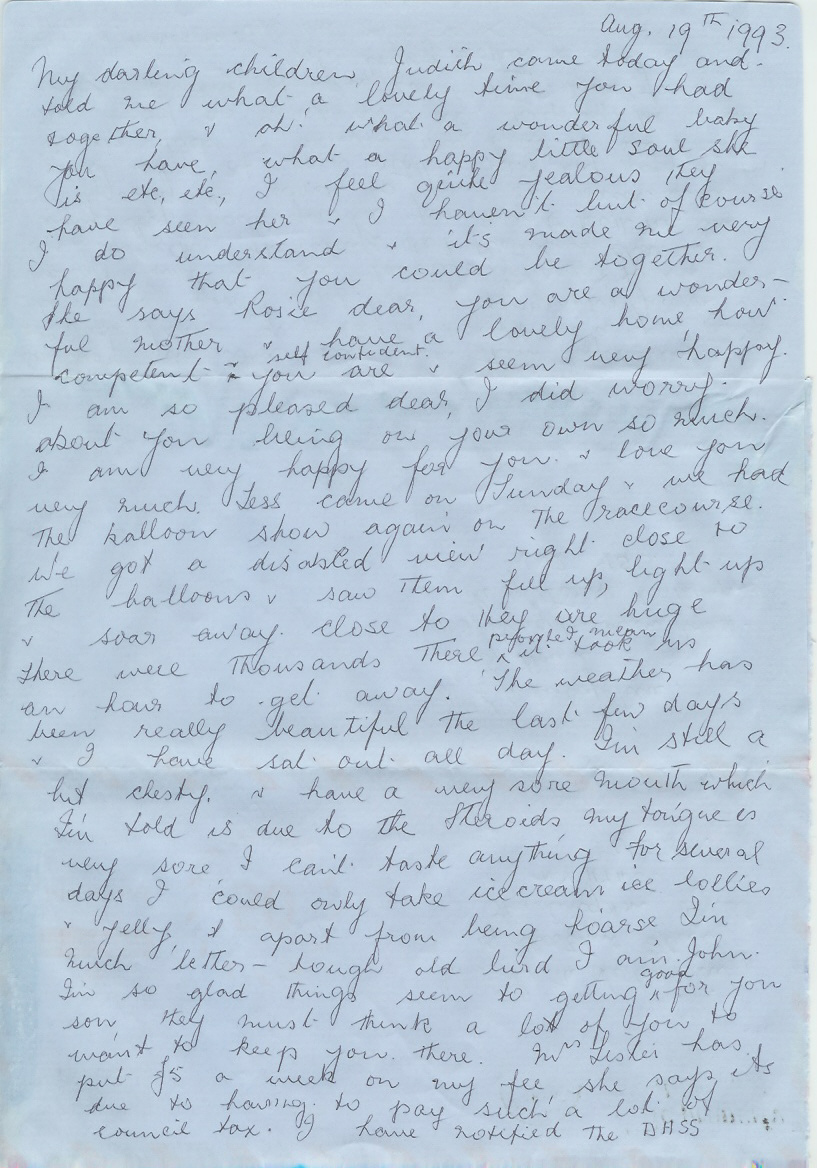 Aug. 19TH 1993.
My darling children, Judith came today and
told me what a lovely time you had
together, & oh! what a wonderful baby
you have, what a happy little soul she
is etc, etc, I feel quite jealous they
have seen her & I haven't but of course
I do understand & it's made me very
happy that you could be together.
She says Rosie dear, you are a wonder-
ful mother & have a lovely home how
competent & self confident you are & seem very happy.
I am so pleased dear, I did worry
about you being on your own so much.
I am very happy for you & love you
very much. Tess came on Sunday & we had
The balloon show again on The racecourse.
We got a disabled view right close to
The balloons & saw Them fill up, light up
& soar away. close to they are huge
There were Thousands There reported mean it took us
an hour to get away. The weather has
been really beautiful the last few days
& I have sat out all day. I'm still a
bit chesty. & have a very sore mouth which
I'm told is due to the steroids my tongue is
very sore I can't taste anything for several
days I could only take icecream ice lollies
& jelly, & apart from being hoarse I'm
much better - tough old bird I am. John.
I'm so glad things seem to getting good for you
son, they must think a lot of you to
want to keep you there. Mrs Lister has
put £5 a week on my fee she says its
due to having to pay such a lot of
council tax. I have notified the DHSS